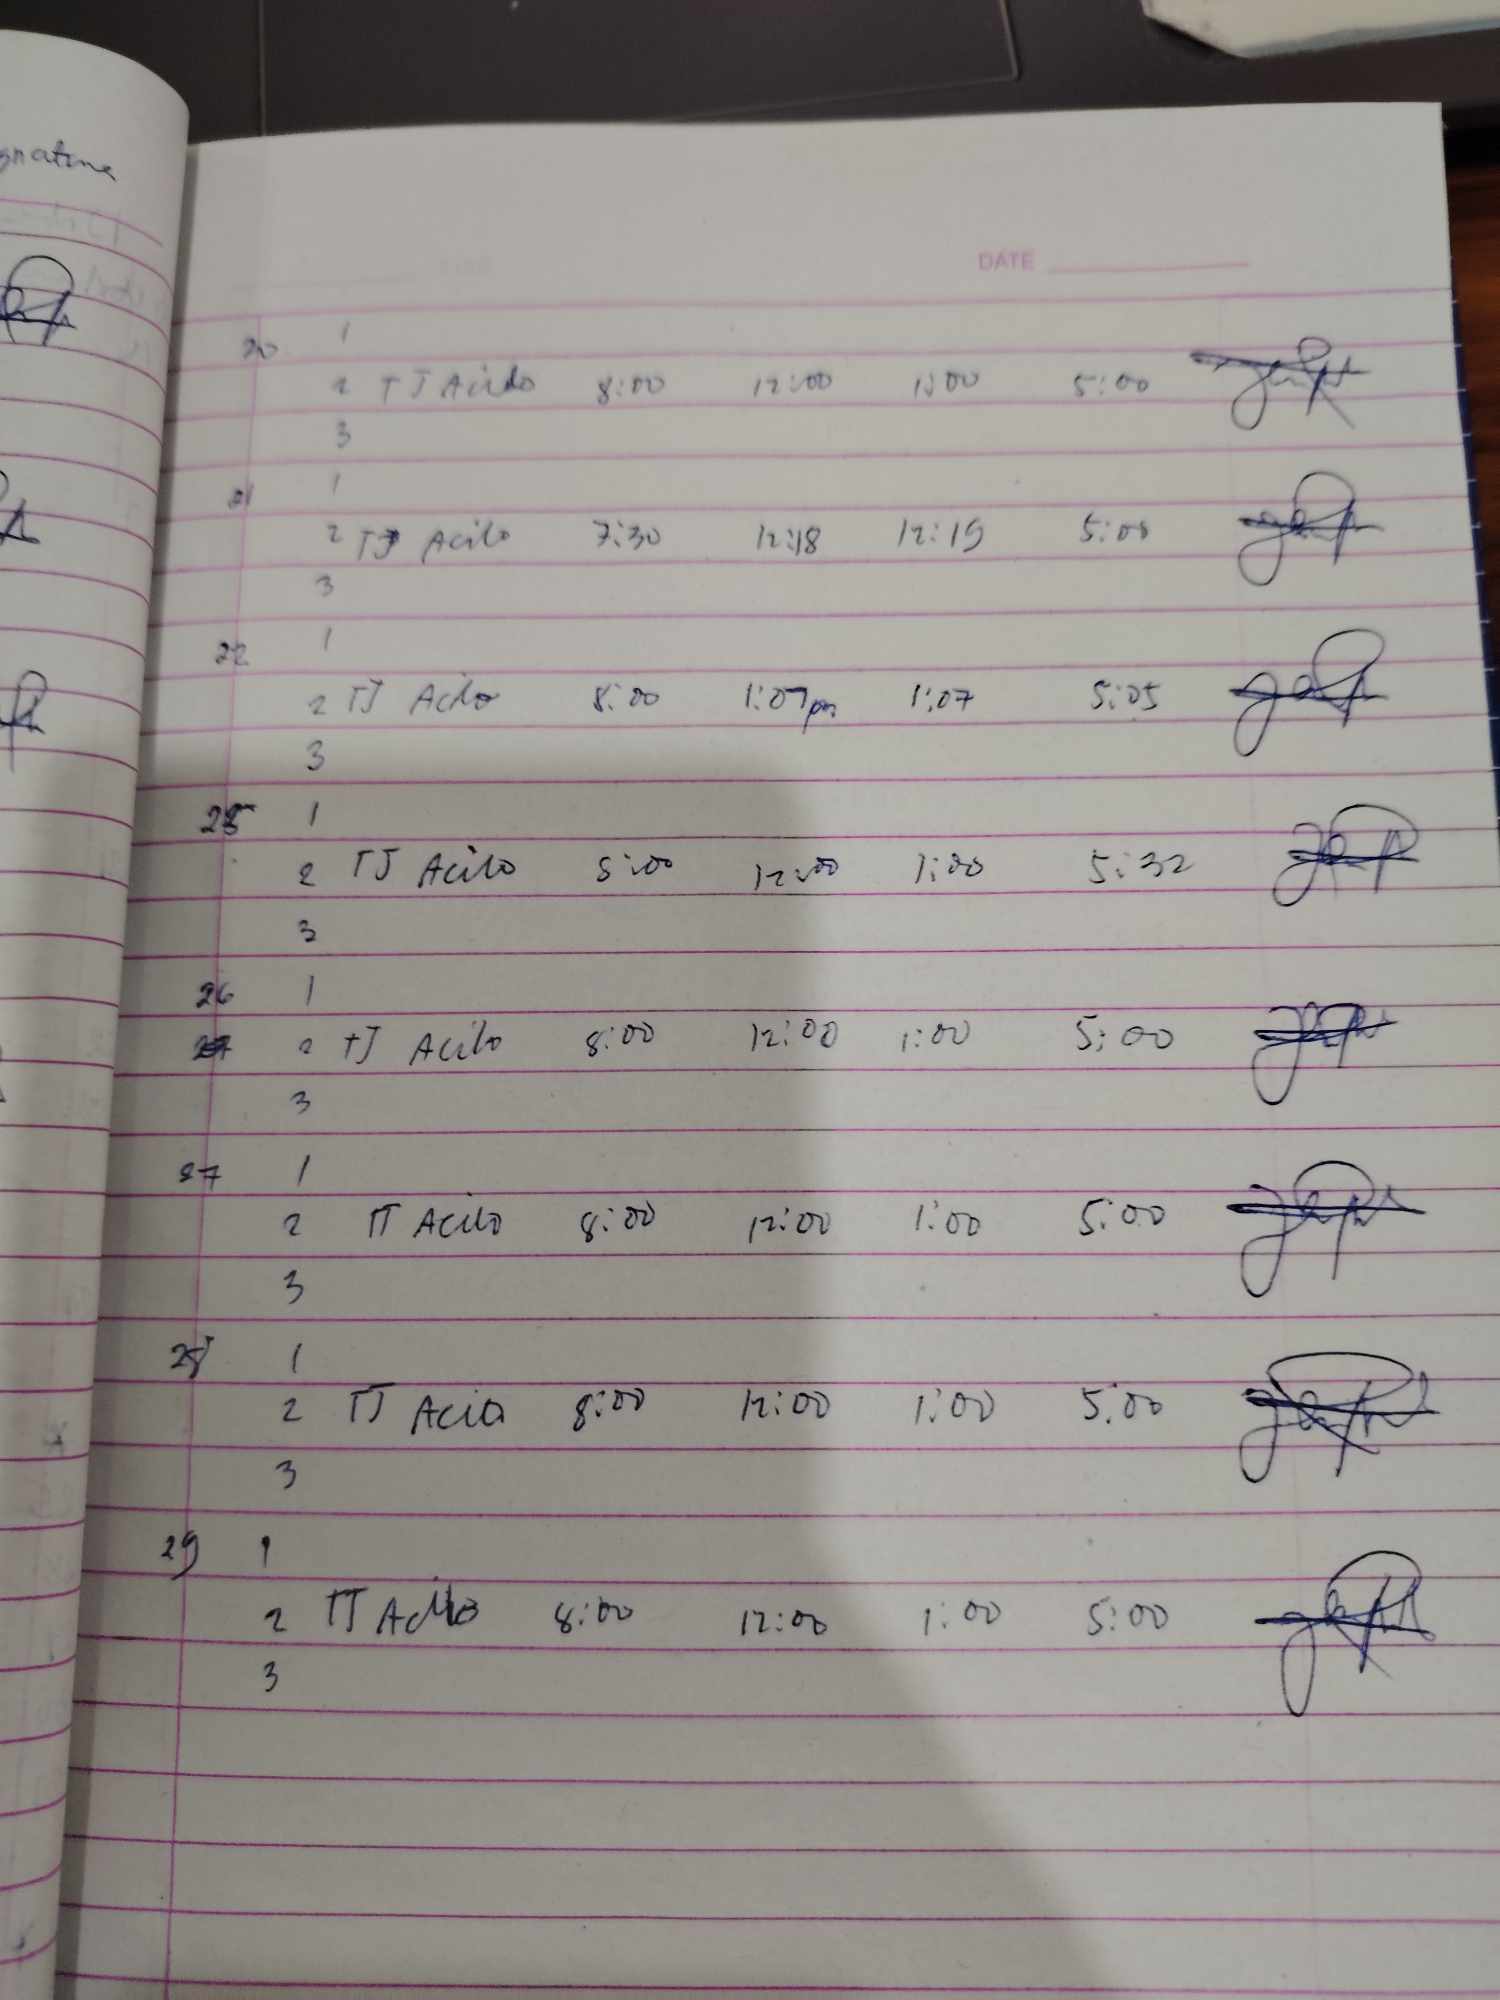 gnature
DATE
20 1
2 TJ Acilo 8:00 12:00 1:00 5:00
3
21 1
2 TJ Acilo 7:30 12:18 12:19 5:00
3
22 1
2 TJ Acilo 8:00 1:07pm 1:07 5:05
3
25 1
2 TJ Acilo 8:00 12:00 1:00 5:32
3
26 1
27 2 TJ Acilo 8:00 12:00 1:00 5:00
3
27 1
2 TJ Acilo 8:00 12:00 1:00 5:00
3
28 1
2 TJ Acilo 8:00 12:00 1:00 5:00
3
29 1
2 TJ Acilo 8:00 12:00 1:00 5:00
3